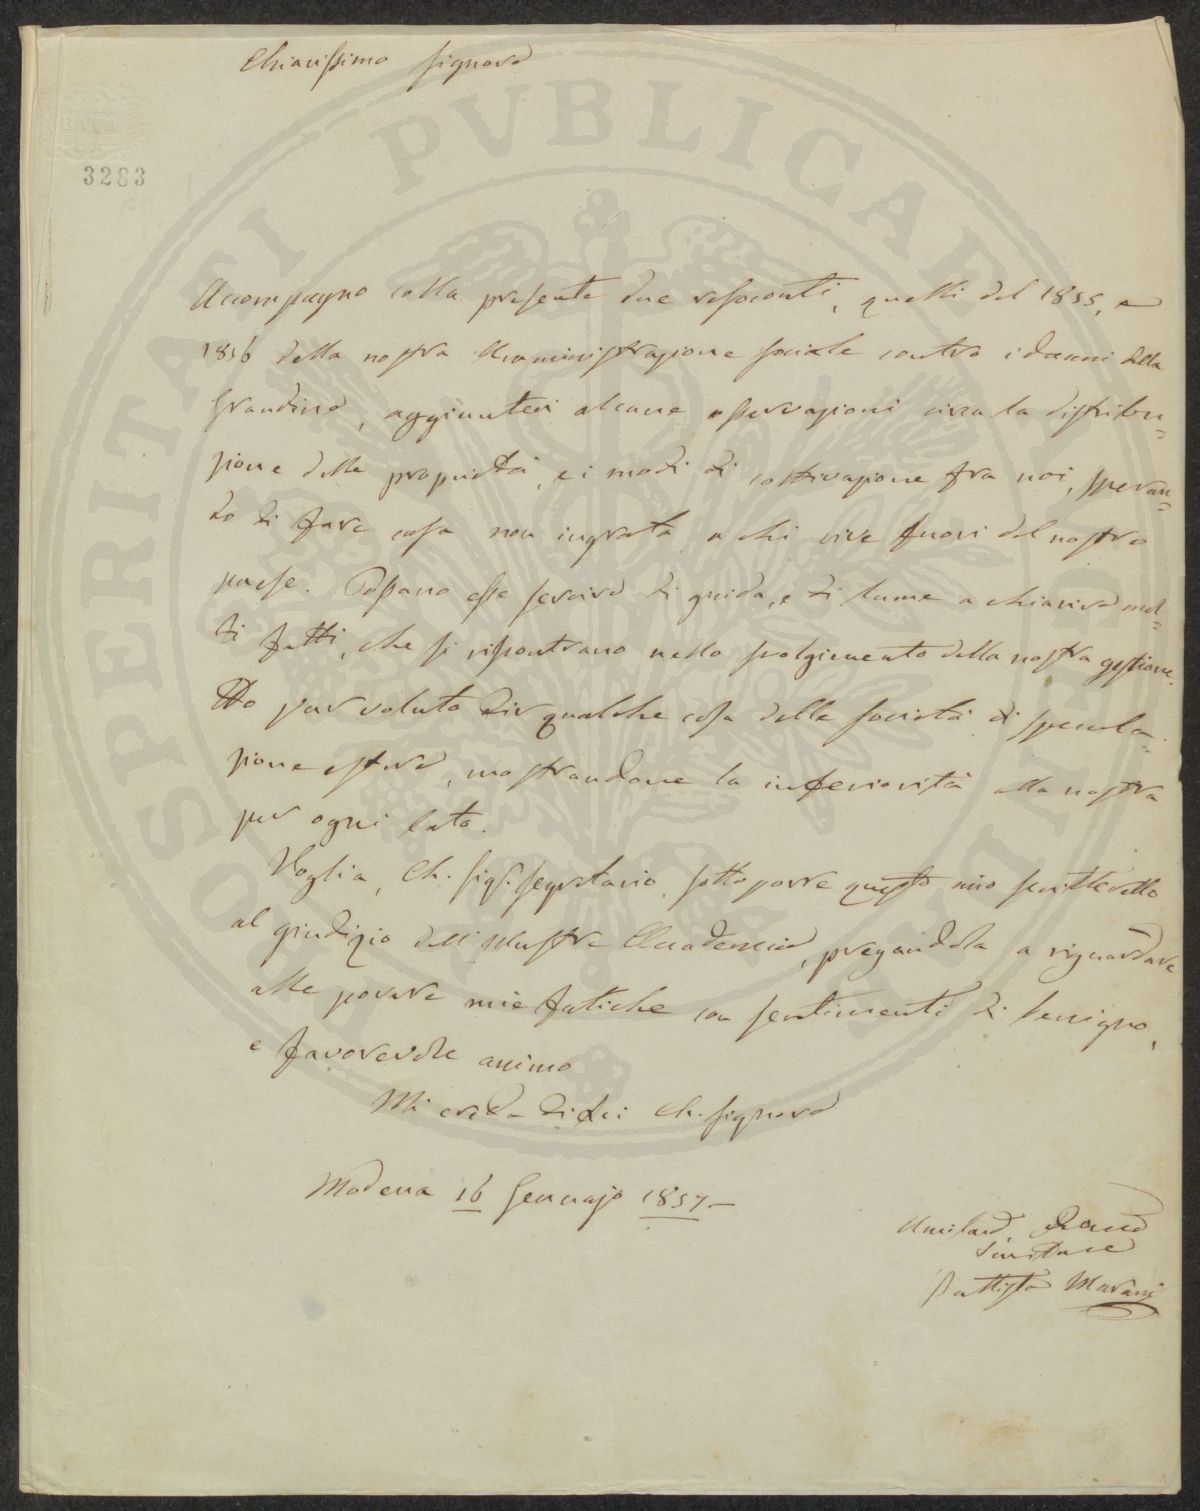 Chiarissimo Signore
3283
Accompagno colla presente due resoconti, quelli del 1855, e
1856 della nostra Amministrazione sociale contro i danni della
Grandine, aggiuntevi alcune osservazioni circa la distribu=
zione della proprietà, e i modi di coltivazione fra noi, speran=
do di fare cosa non ingrata a chi vive fuori del nostro
paese. Possano esse servire di guida, e di lume a chiarire mol=
ti fatti, che si riscontrano nello svolgimento della nostra gestione.
Ho pur voluto dir qualche cosa delle società di specula=
zione estere, mostrandone la inferiorità alla nostra
per ogni lato.
Voglia, Ch. Sigr. Segretario, sottoporre questo mio scritterello
al giudizio dell'illustre Accademia, pregandola a riguardare
alle povere mie fatiche con sentimenti di benigno,
e favorevole animo
Mi creda di Lei Ch. Signore
Modena 16 Gennajo 1857 –
Battista Marani
PVBLICAE